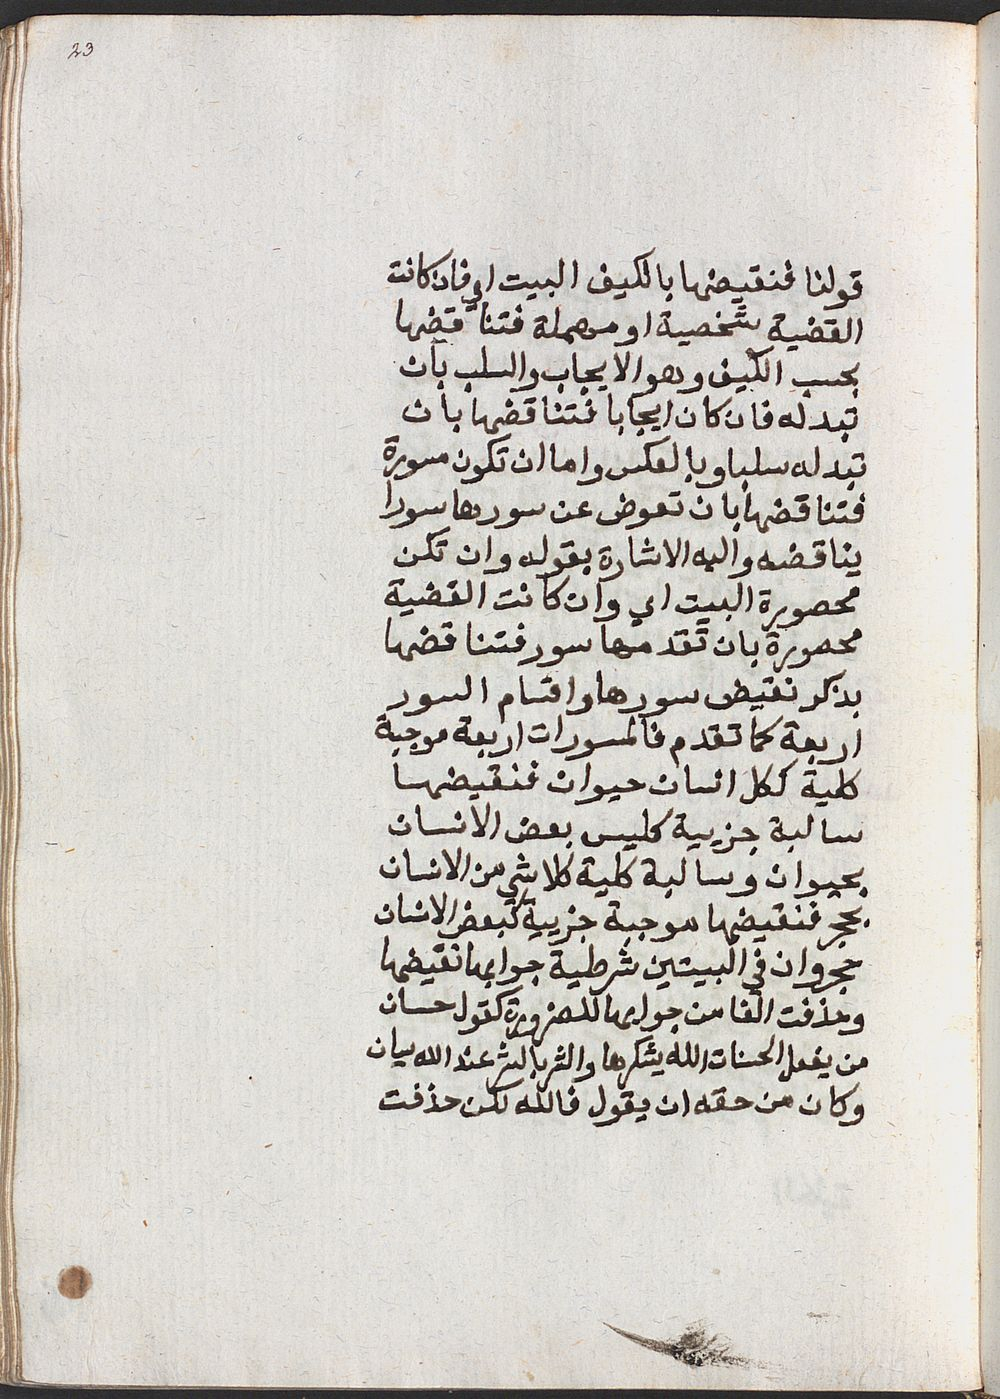 23
قولنا فنقيضها بالكيف البيت اي فان كانت
القضية شخصية او مهملة فتناقضها
بحسب الكيف وهو الايجاب والسلب بان
تبدله فان كان ايجابا فتناقضها بان
تبدله سلبا وبالعكس واما ان تكون مسورة
فتناقضها بان تعوض عن سورها سورا
يناقضه واليه الاشارة بقوله وان تكن
محصورة البيت اي وان كانت القضية
محصورة بان تقدمها سور فتناقضها
بذكر نقيض سورها واقسام السور
اربعة كما تقدم فالمسورات اربعة موجبة
كلية ككل انسان حيوان فنقيضها
سالبة جزيية كليس بعض الانسان
بحيوان وسالبة كلية كلا شي من الانسان
بحجر فنقيضها موجبة جزيية كبعض الانسان
حجر وان في البيتين شرطية جوابها نقيضها
وحذفت الفا من جوابها للضرورة كقول حسان
من يفعل الحسنات الله يشكرها والشر بالشر عند الله سيان
وكان من حقه ان يقول فالله لكن حذفت